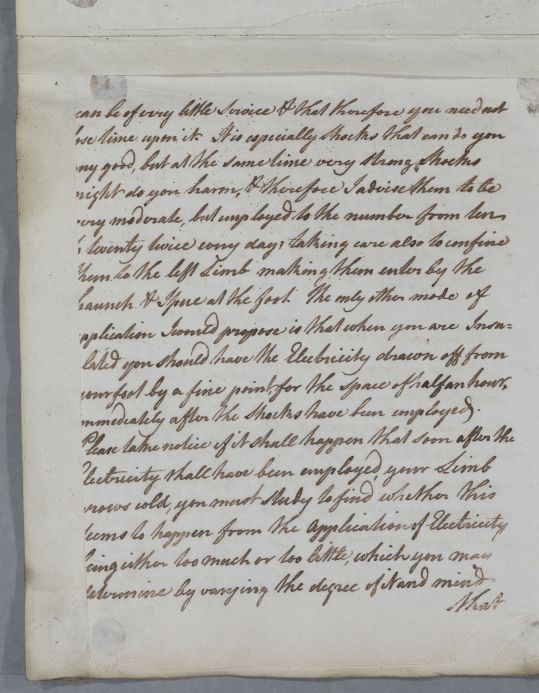 can be of very little Service & that therefore you need not
lose time upon it. It is especially shocks that can do you
any good, but at the same time very strong Shocks
might do you harm, & therefore I advise them to be
very moderate, but employed to the number from ten
to twenty twice every day; taking care also to confine
them to the left Limb making them enter by the
haunch & Issue at the foot. The only other mode of
application I would propose is that when you are Insu-
lated you should have the Electricity drawn off from
your foot by a fine point for the space of half an hour,
immediately after the Shocks have been employed.
Please take notice if it shall happen that soon after the
Electricity shall have been employed your Limb
grows cold, you must study to find whether this
seems to happen from the Application of Electricity
being either too much or too little, which you may
determine by varying the degree of it and mind
that